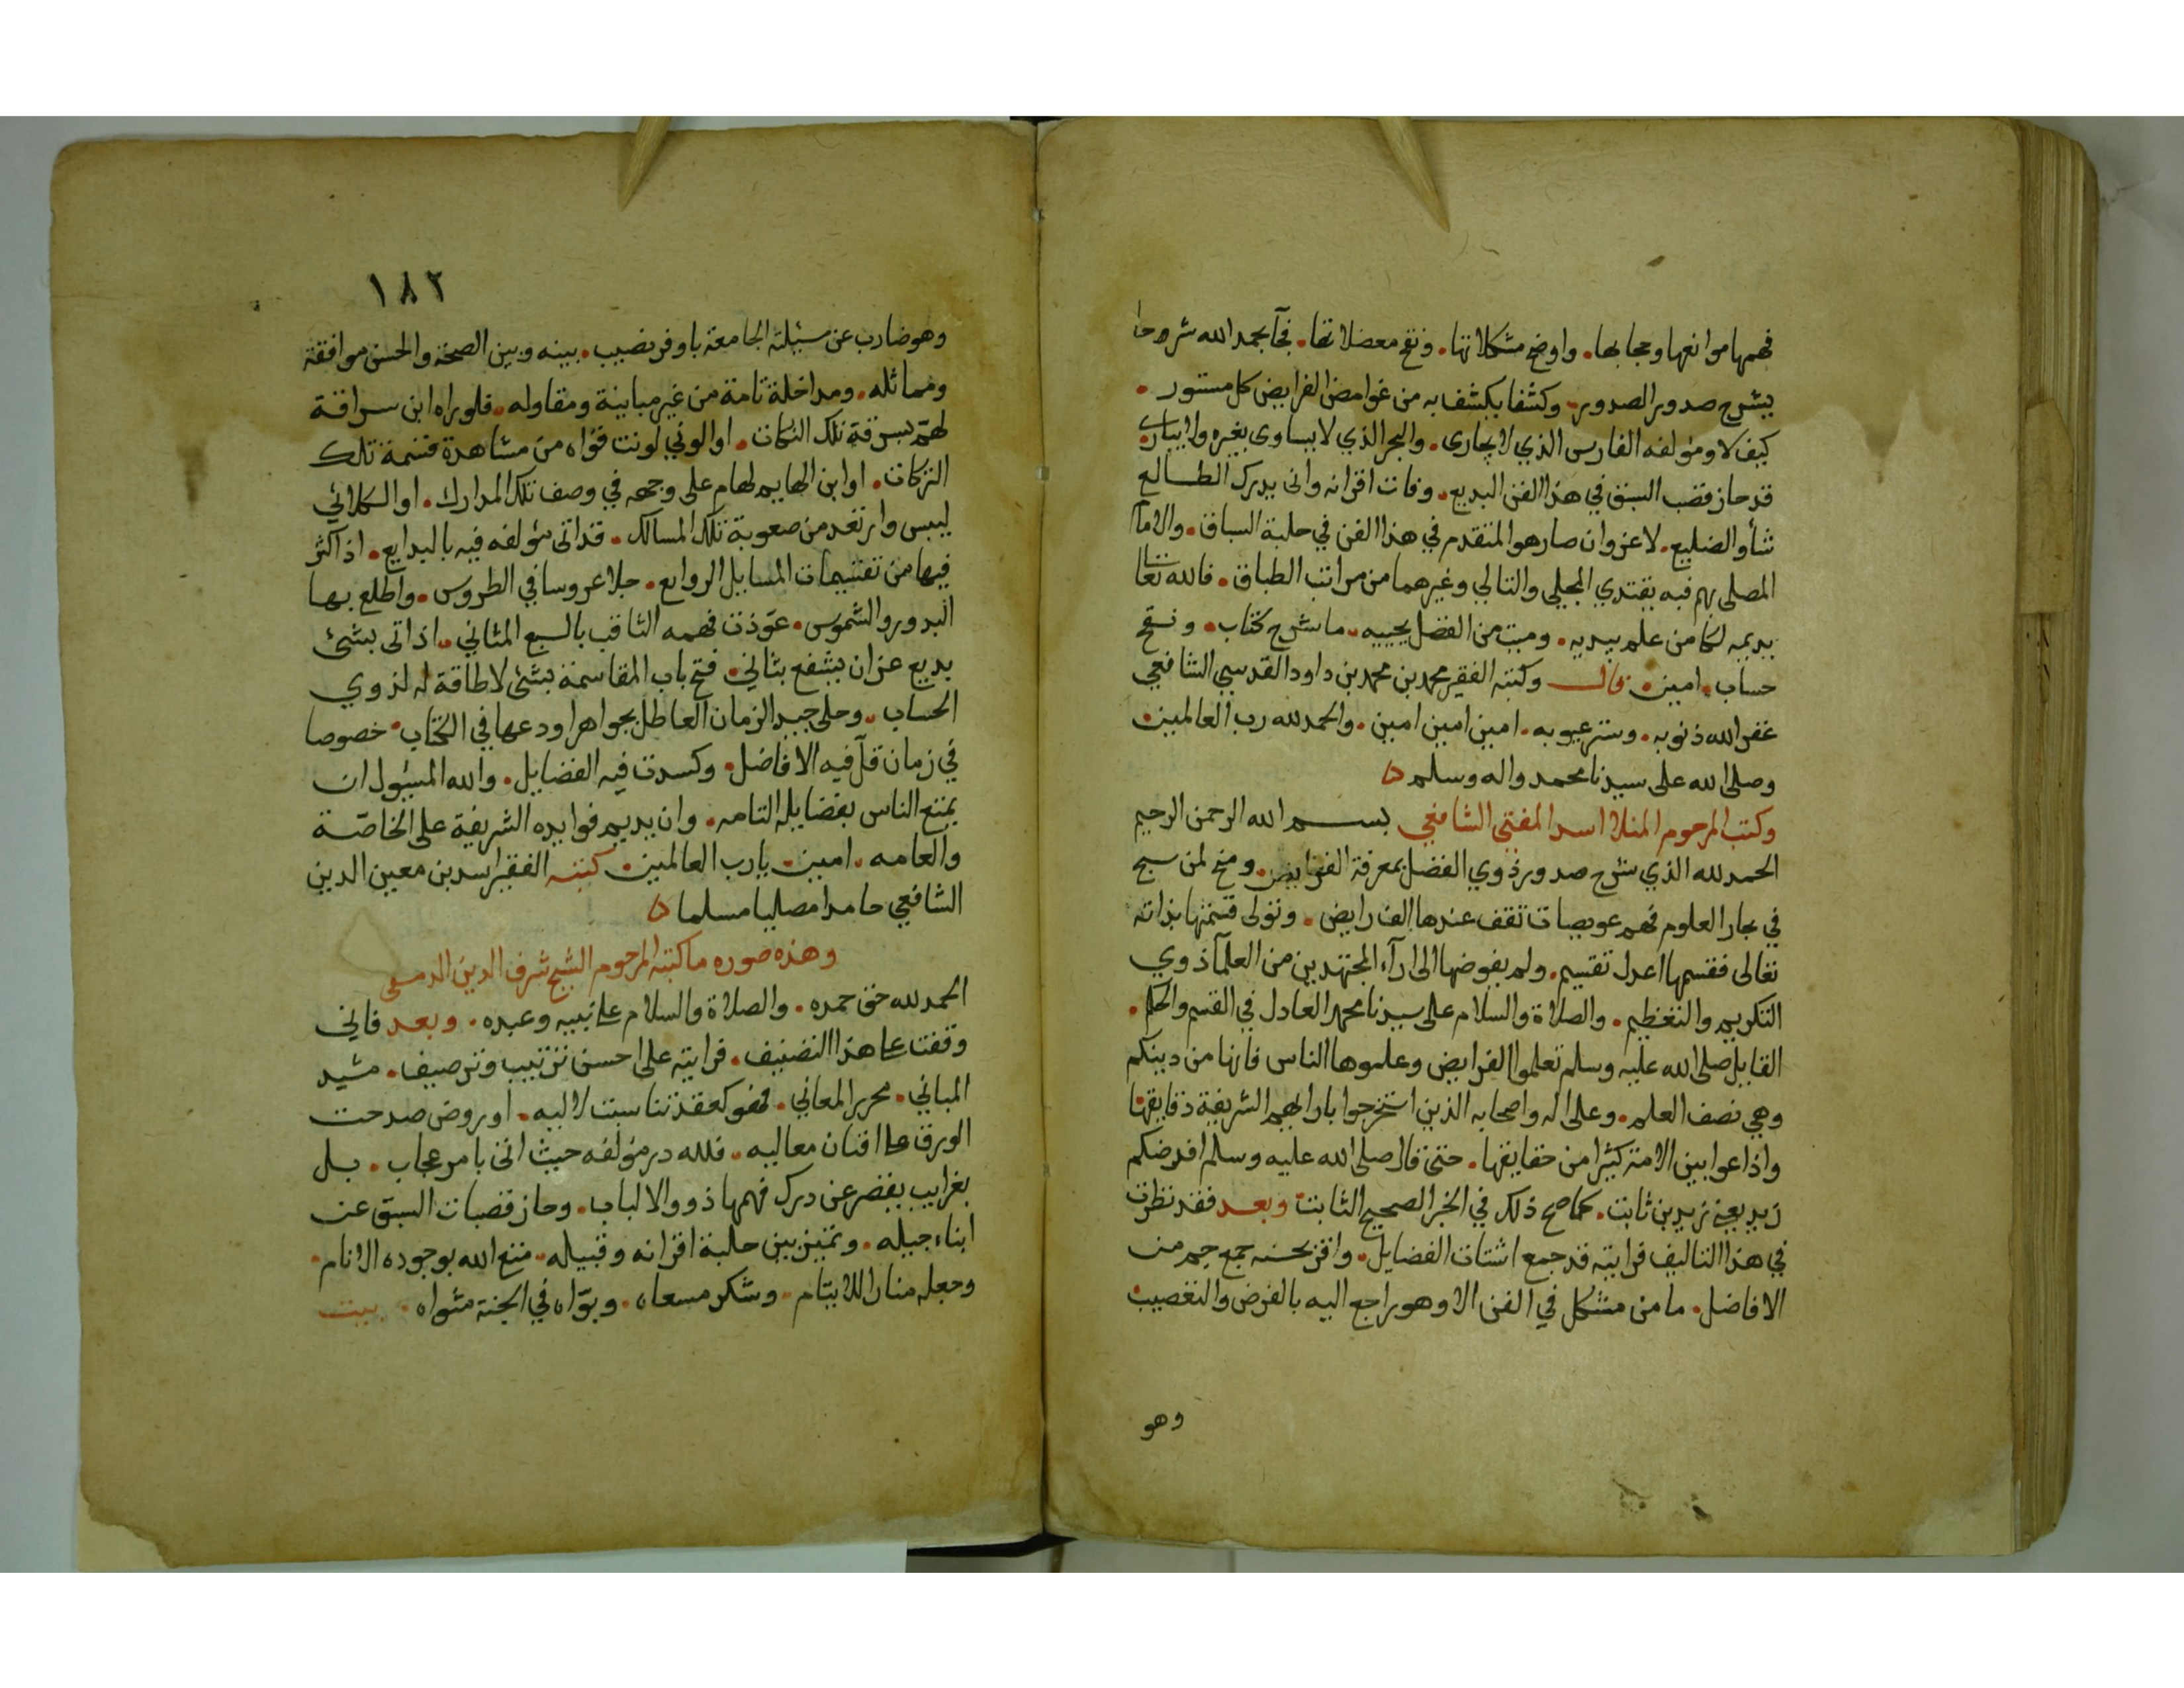 فهمها موانعها وحجابها. واوضح مشكلاتها. ونقح معضلاتها. فجآ بحمد الله شرحا
يشرح صدور الصدور. وكشفا يكشف به من غوامض الفرايض كل مستور.
كيف لا ومؤلفه الفارس الذي لا يجارى. والبحر الذي لا يساوى بغيره ولا يبارى.
قد حاز قصب السبق في هذا الفن البديع. وفات اقرانه وانى يدرك الطالع
شأو الضليع. لا غروان صار هو المتقدم في هذا الفن في حلبة السباق. والامآ
المصلى بهم فبه يقتدي المجلي والتالي وغيرهما من مراتب الطباق. فالله تعا
يديمه لكامن علم يبديه. وميت من الفضل يحييه. ما شرح كتاب. ونقح
حساب. امين. قال وكتبه الفقير محمد بن محمد بن داود القدسي الشافعي
غفر الله ذنوبه. وستر عيوبه. امين امين امين. والحمد لله رب العالمين.
وصلى الله على سيدنا محمد واله وسلم
وكتب المرحوم المنلا اسد المفتي الشافعي بسم الله الرحمن الرحيم
الحمد لله الذي شرح صدور ذوي الفضل بمعرفة الفرايض. ومنح لمن سبح
في بحار العلوم فهم عويصات تقف عندها الفرايض. وتولى قسمتها بذاته
تعالى فقسمها اعدل تقسيم. ولم يفوضها الى ارآء المجتهدين من العلمآ ذوي
التكريم والتعظيم. والصلاة والسلام على سيدنا محمد العادل في القسم والحكم.
القايل صلى الله عليه وسلم تعلموا الفرايض وعلموها الناس فانها من دينكم
وهي نصف العلم. وعلى اله واصحابه الذين استخرجوا بارايهم الشريفة دقايقها
واذاعوا بين الامة كثيرا من حقايقها. حتى قال صلى الله عليه وسلم افرضكم
زيد يعني زيد بن ثابت. كما صح ذلك في الخبر الصحيح الثابت وبعد فقد نظرت
في هذا التاليف فرايته قد جمع اشتات الفضايل. واقر بحسنه جمع جم من
الافاضل. ما من مشكل في الفن الا وهو راجع اليه بالفرض والتعصيب.
وهو
١٨٢
وهو ضارب عن سيلته الجامعة باوفر نصيب. بينه وبين الصحة والحسن موافقة
ومماثله. ومداخلة تامة من غير مباينة ومقاوله. فلو راه ابن سراقة
لهمّ بسرقة تلك النكات. او الوني لونت قواه من مشاهدة قسمة تلك
التركات. او ابن الهايم لهام على وجهه في وصف تلك المدارك. او الكلائي
ليبس وارتعد من صعوبة تلك المسالك. قد اتى مؤلفه فيه بالبدايع. اذ اكثر
فيها من تقسيمات المسايل الروايع. جلا عروسا في الطروس. واطلع بها
البدور والشموس. عوّذت فهمه الثاقب بالسبع المثاني. اذ اتى بشئ
بديع عز ان يشفع بثاني. فتح باب المقاسمة بشئ لا طاقة له لذوي
الحساب. وحلى جيد الزمان العاطل بجواهر اودعها في الكتاب. خصوصا
في زمان قلّ فيه الافاضل. وكسدت فيه الفضايل. والله المسئول ان
يمتع الناس بفضايله التامه. وان يديم فوايده الشريفة على الخاصّة
والعامه. امين. يا رب العالمين. كتبه الفقير اسد بن معين الدين
الشافعي حامدا مصليا مسلما
وهذه صوره ما كتبه المرحوم الشيخ شرف الدين الدمسقي
الحمد لله حق حمده. والصلاة والسلام على نبيه وعبده. وبعد فاني
وقفت على هذا التصنيف. فرايته على احسن ترتيب وترصيف. مشيد
المباني. محرر المعاني. فهو كعقد تناسبت لاليه. او روض صدحت
الورق على افنان معاليه. فلله در مؤلفه حيث اتى بامر عجاب. بل
بغرايب يقصر عن درك فهمها ذووا الالباب. وحاز قصبات السبق عن
ابناء جيله. وتميز بين حلبة اقرانه وقبيله. متع الله بوجوده الانام.
وجعله منارا للايتام. وشكر مسعاه. وبوّاه في الجنة مثواه. بيت